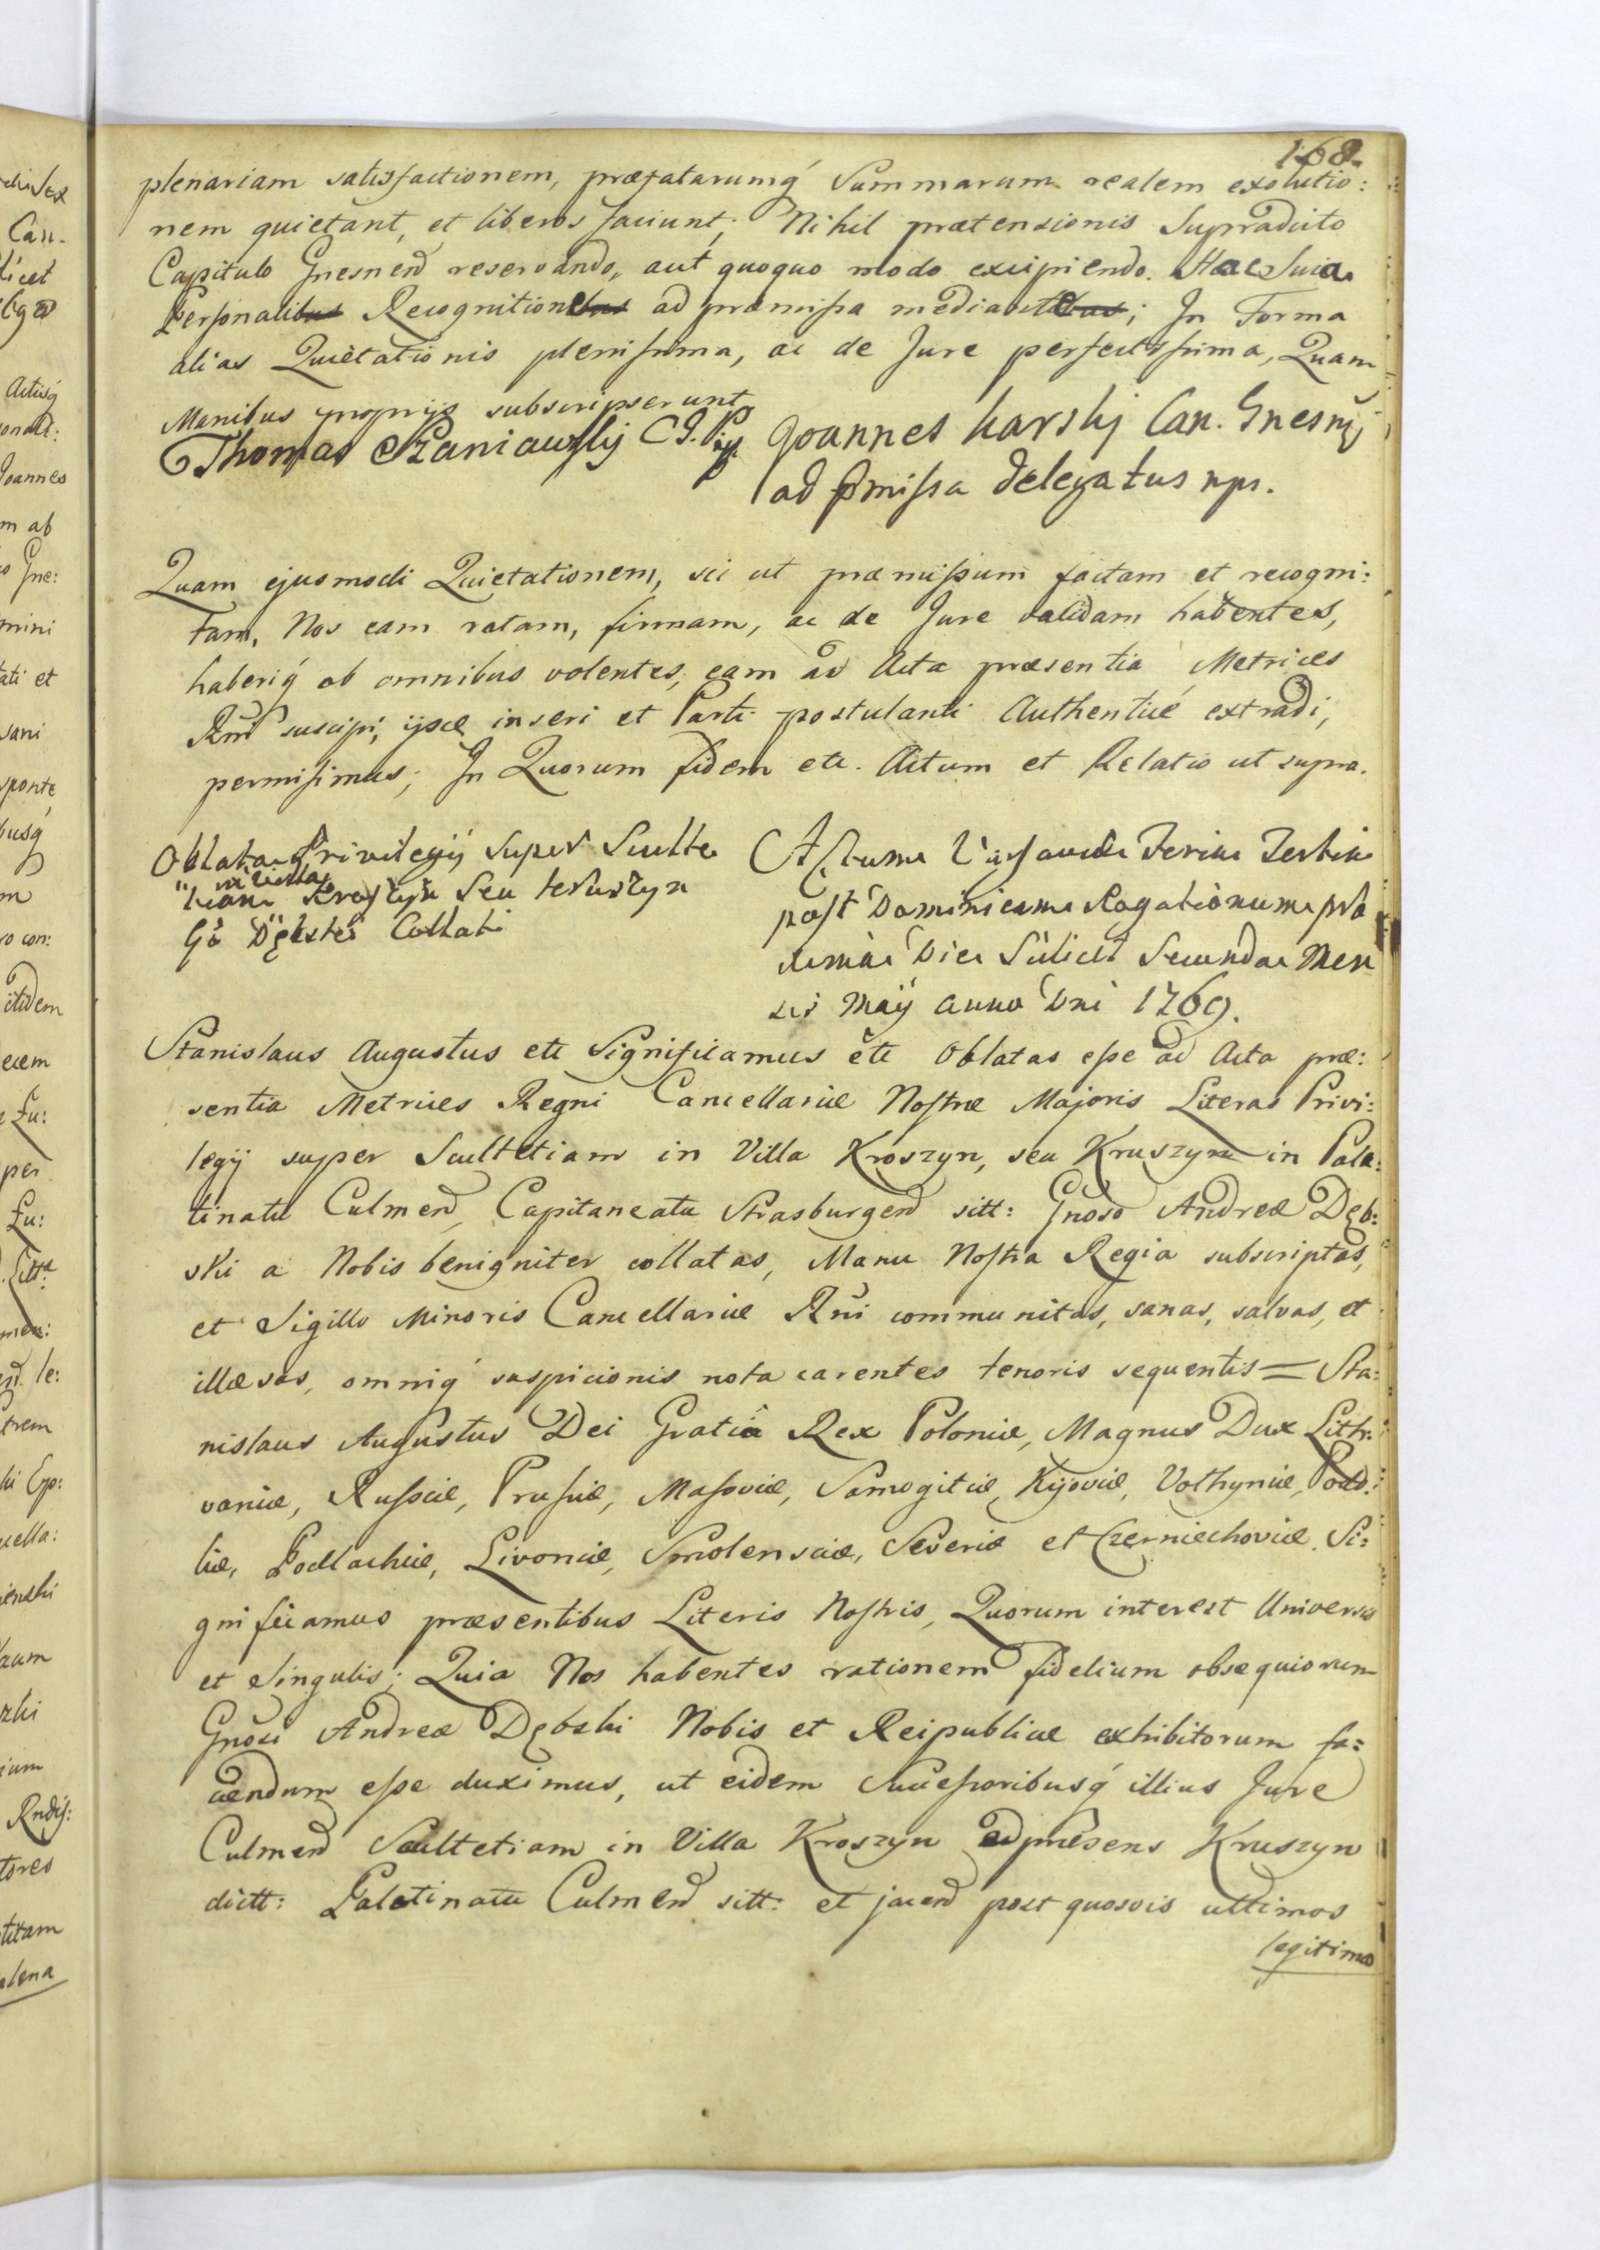 168.
plenariam satisfactionem, præfatarumq́ Summarum realem exolutio:
nem quietant, et liberos faciunt, Nihil prætensionis Supradicto
Capitulo Gnesnen reservando, aut quoquo modo excipiendo. Hac Sua
Personali Recognitione ad præmissa mediante; In Forma
alias Quietationis plenissima, ac de Jure perfectissima, Quam
Manibus proprijs subscripserunt
Thomas Szaniawskij C. G. Joannes Karskij Can. Gnesnẽ
ad p̃missa delegatus mpr.
Quam ejusmodi Quietationem, sic ut præmissum factam et recogni:
tam, Nos eam ratam, firmam, ac de Jure validam habentes,
haberiq́ ab omnibus volentes, eam ad Acta præsentia Metrices
Rñi suscipi, ijsq́ inseri et Parti postulanti Authenticè extradi,
permisimus; In Quorum fidem etc. Actum et Relatio ut supra.
Oblata Privilegij super Sculte
in Villa
tiam Kroszyn Seu Kruszyn
Gõ Dębski Collati
Actum Varsaviæ Feria Tertia
post Dominicam Rogationum pro
xima Die Scilicet Secunda Men
sis Maij Anno Dni 1769.
Stanislaus Augustus etc Significamus etc Oblatas esse ad Acta præ:
sentia Metrices Regni Cancellariæ Nostræ Majoris Literas Privi:
legij super Scultetiam in Villa Kroszyn, seu Kruszyn in Pala:
tinatu Culmen, Capitaneatu Strasburgen sitt: Gñoso Andreæ Dęb:
ski a Nobis benigniter collatas, Manu Nostra Regia subscriptas,
et Sigillo Minoris Cancellariæ Rñi communitas, sanas, salvas, et
illæsas, omniq́ suspicionis nota carentes tenoris sequentis = Sta:
nislaus Augustus Dei Gratiâ Rex Poloniæ, Magnus Dux Lith:
vaniæ, Russiæ, Prussiæ, Masoviæ, Samogitiæ, Kijoviæ, Volhyniæ, Podo:
liæ, Podlachiæ, Livoniæ, Smolensciæ, Severiæ et Czerniechoviæ. Si:
gnificamus præsentibus Literis Nostris, Quorum interest Universis
et Singulis; Quia Nos habentes rationem fidelium obsequiorum
Gñosi Andreæ Dębski Nobis et Reipublicæ exhibitorum fa:
ciendum esse duximus, ut eidem Successoribusq́ illius Jure
Culmen Scultetiam in Villa Kroszyn ad præsens Kruszyn
dictt: Palatinatu Culmen sitt: et jacen post quosvis ultimos
legitimos